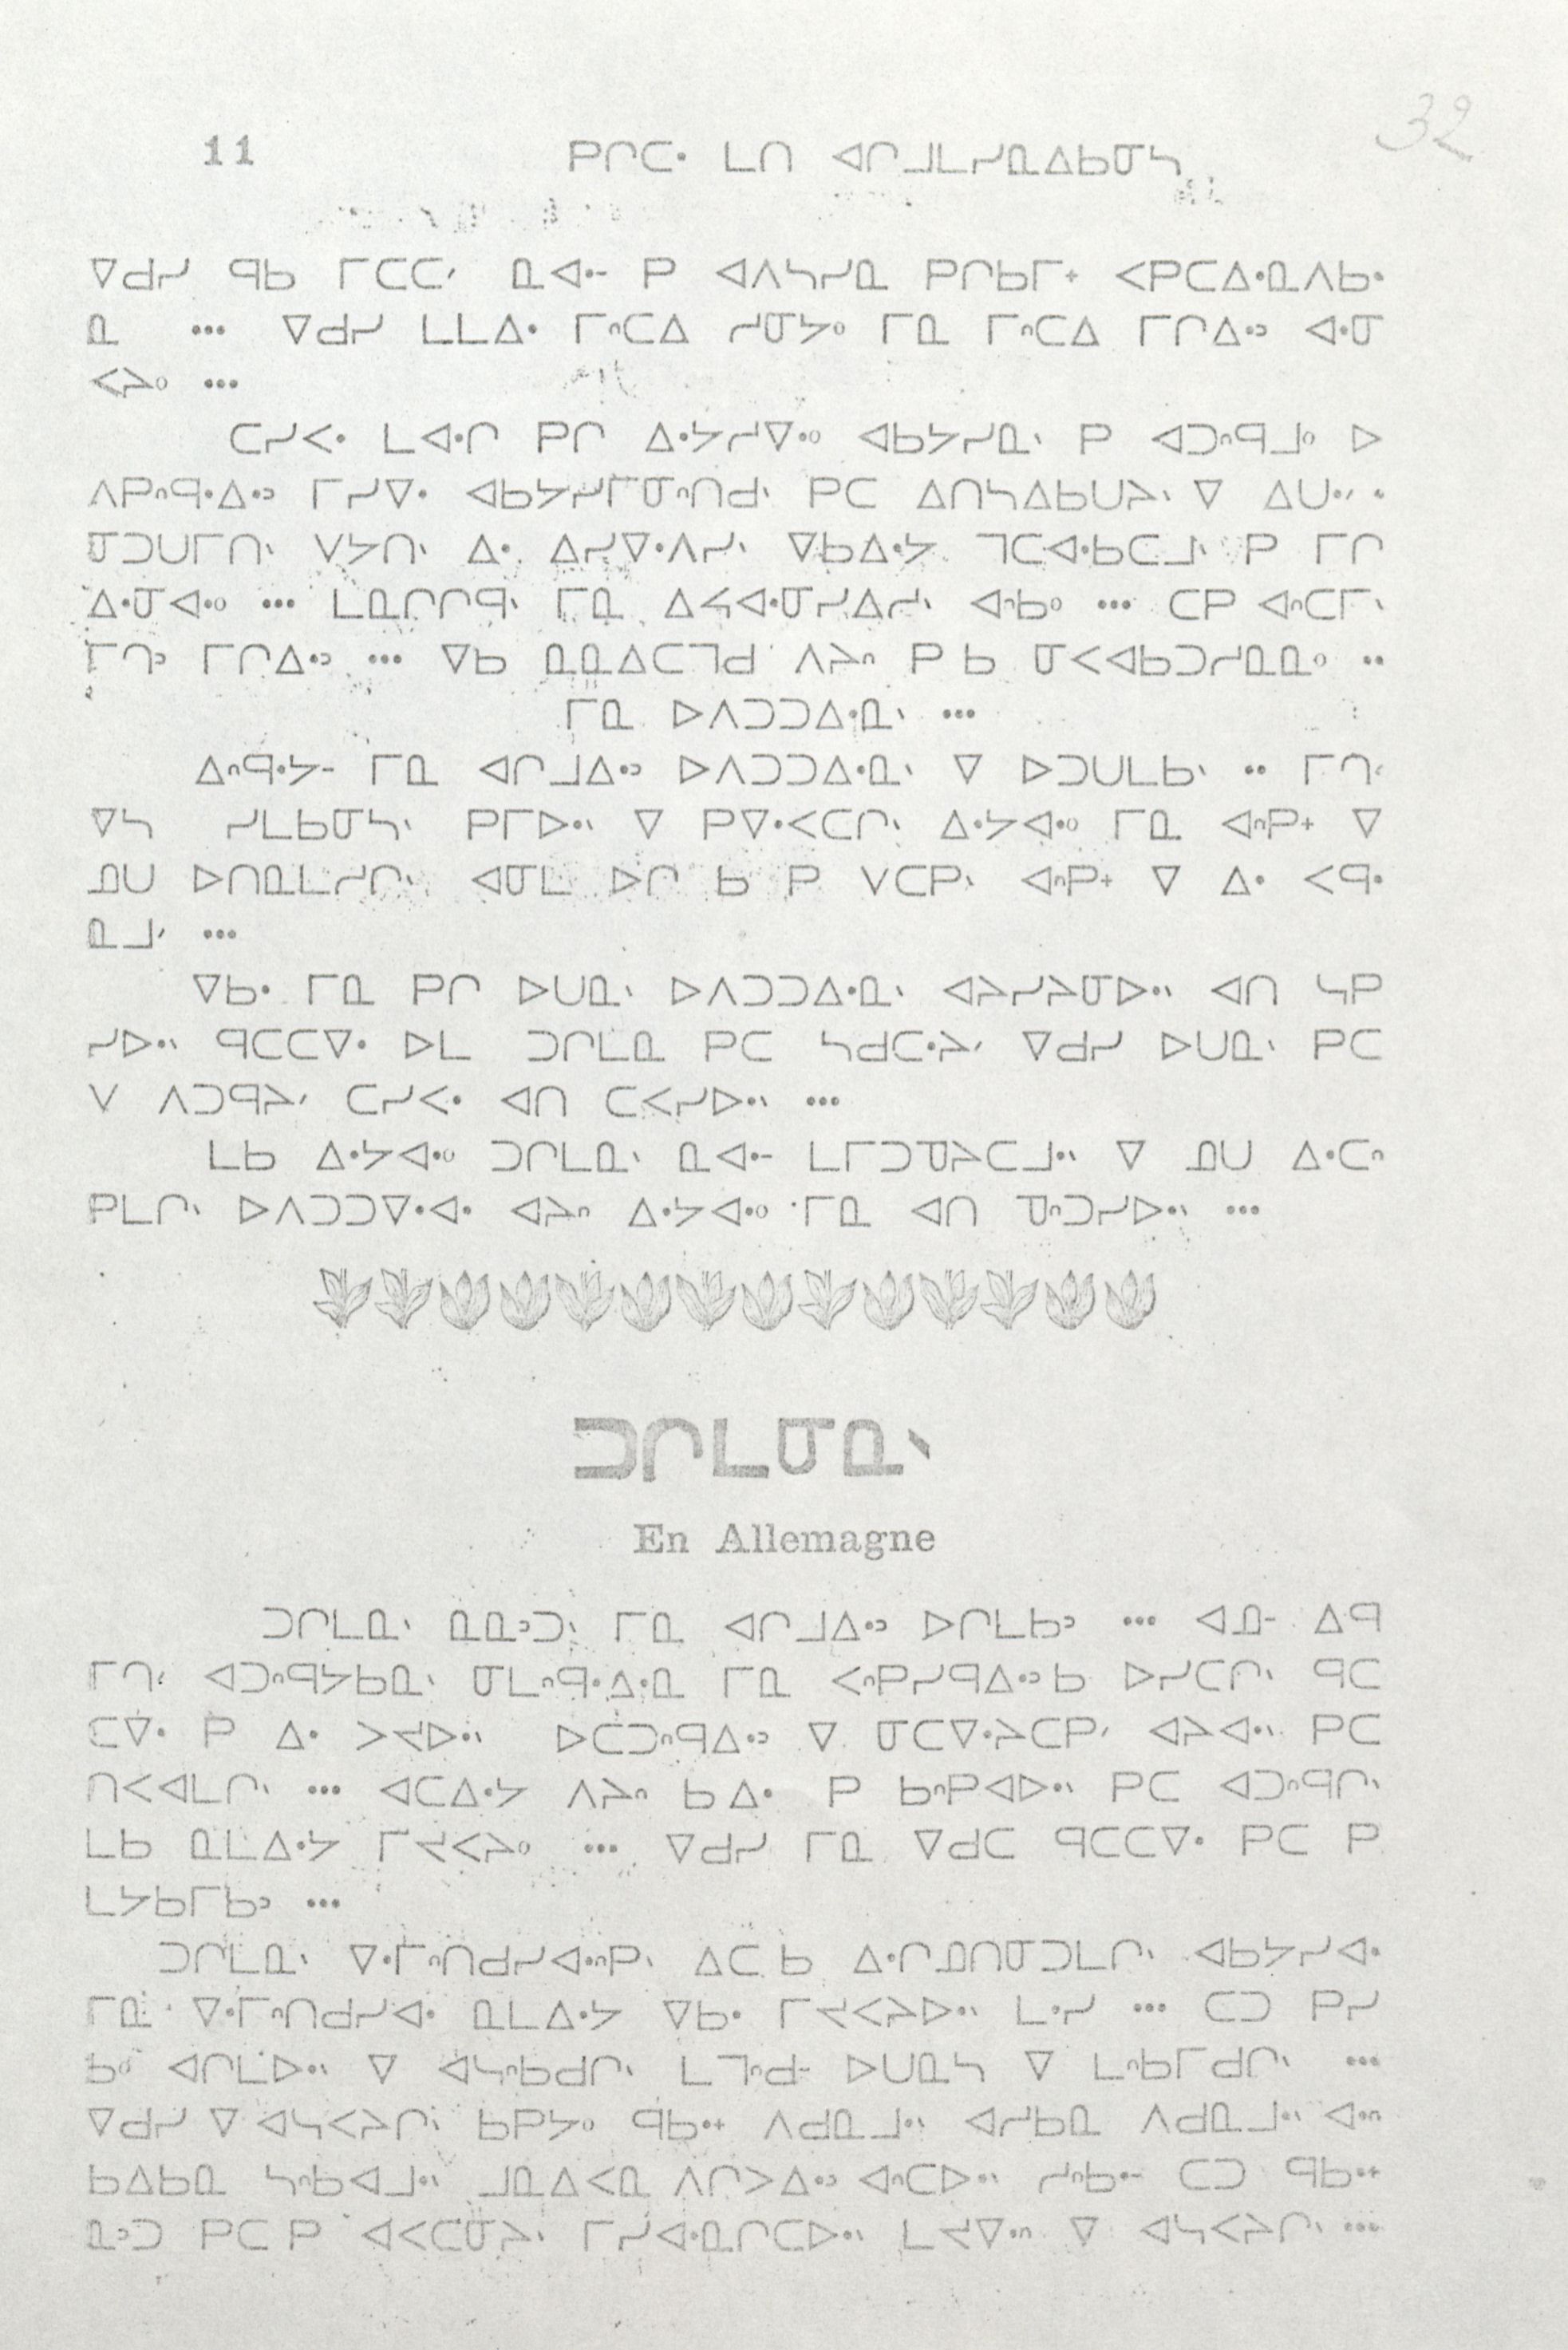 32
11 ᑭᒋᑕᐧ ᒪᑎ ᐊᒋᒧᒪᓯᓇᐃᑲᓀᓴ
ᐁᑯᓯ ᑫᑲ ᒥᑕᑕᐟ ᓇᐊᐧᐨ ᑭ ᐊᐱᓴᓯᓇ ᑭᒋᑲᒥᐩ ᐸᑭᑕᐃᐧᓇᐱᑲᐧ
ᓇ ... ᐁᑯᓯ ᒪᒪᐃᐧ ᒥᐢᑕᐃ ᓯᓀᔭᐤ ᒥᓇ ᒥᐢᑕᐃ ᒥᒋᐃᐧᐣ ᐊᐧᓀ
ᐸᔨᐤ ...
ᑕᓯᐸᐧ ᒪᐊᐧᒋ ᑭᒋ ᐃᐧᔭᓯᐁᐧᐤ ᐊᑲᔭᓯᓇᐠ ᑭ ᐊᑐᐢᑫᒧᐤ ᐅ
ᐱᑭᐢᑫᐧᐃᐧᐣ ᒥᓯᐁᐧ ᐊᑲᔭᓯᒥᓀᐢᑎᑯᐠ ᑭᑕ ᐃᑎᓴᐃᑲᑌᔨᐠ ᐁ ᐃᑌᐧᐟ
ᓀᑐᑌᒥᑎᐠ ᐯᔭᑎᐠ ᐃᐧ ᐃᓯᐁᐧᐱᓯᐠ ᐁᑲᐃᐧᔭ ᒣᑕᐊᐧᑲᑕᒧᐠ ᑭ ᒥᒋ
ᐃᐧᓀᐊᐧᐤ ... ᒪᓇᒋᒋᑫᐠ ᒥᓇ ᐃᔕᐊᐧᓀᓯᐃᓯᐠ ᐊᐢᑲᐤ ... ᑕᑭ ᐊᐢᑕᒥᐠ
ᒥᑎᐣ ᒥᒋᐃᐧᐣ ... ᐁᑲ ᓇᓇᐃᑕᒣᑯ ᐱᔨᐢ ᑭ ᑲ ᓀᐸᐊᑲᑐᓯᓇᓇᐤ ..
ᒥᓇ ᐅᐱᑐᑐᐃᐧᓇᐠ ...
ᐃᐢᑫᐧᔭᐨ ᒥᓇ ᐊᒋᒧᐃᐧᐣ ᐅᐱᑐᑐᐃᐧᓇᐠ ᐁ ᐅᑐᑌᒪᑲᐠ .. ᒥᑎᐠ
ᐁᓴ ᓯᒪᑲᓀᓴᐠ ᑭᒥᐅᐧᐠ ᐁ ᑭᐁᐧᐸᑕᒋᐠ ᐃᐧᔭᐊᐧᐤ ᒥᓇ ᐊᐢᑭᐩ ᐁ
ᓄᑌ ᐅᑎᓇᒪᓯᒋᐠ ᐊᓀᒪ ᐅᒋ ᑲ ᑭ ᐯᑕᑭᐠ ᐊᐢᑭᐩ ᐁ ᐃᐧ ᐸᑫᐧ
ᓇᒧᐟ ...
ᐁᑲᐧ ᒥᓇ ᑭᒋ ᐅᑌᓇᐠ ᐅᐱᑐᑐᐃᐧᓇᐠ ᐊᔨᓯᔨᓀᐅᐧᐠ ᐊᑎ ᓴᑭ
ᓯᐅᐧᐠ ᑫᑕᑕᐁᐧ ᐅᒪ ᑐᒋᒪᓇ ᑭᑕ ᓴᑯᑕᐧᔨᐟ ᐁᑯᓯ ᐅᑌᓇᐠ ᑭᑕ
ᐯ ᐱᑐᑫᔨᐟ ᑕᓯᐸᐧ ᐊᑎ ᑕᐸᓯᐅᐧᐠ ...
ᒪᑲ ᐃᐧᔭᐊᐧᐤ ᑐᒋᒪᓇᐠ ᓇᐊᐧᐨ ᒪᒥᑐᓀᔨᑕᒧᐧᐠ ᐁ ᓄᑌ ᐃᐧᑕᐢ
ᑭᒪᒋᐠ ᐅᐱᑐᑐᐁᐧᐊᐧ ᐊᔨᐢ ᐃᐧᔭᐊᐧᐤ ᒥᓇ ᐊᑎ ᓀᐢᑐᓯᐅᐧᐠ ...
ᑐᒋᒪᓀᓇᐠ
En Allemagne
ᑐᒋᒪᓇᐠ ᓇᓇᐣᑐᐠ ᒥᓇ ᐊᒋᒧᐃᐧᐣ ᐅᒋᒪᑲᐣ ... ᐊᓄᐨ ᐃᑫ
ᒥᑎᐠ ᐊᑐᐢᑫᔭᑲᓇᐠ ᓀᒪᐢᑫᐧᐃᐧᓇ ᒥᓇ ᐸᐢᑭᓯᑫᐃᐧᐣ ᑲ ᐅᓯᑕᒋᐠ ᑫᑕ
ᑕᐁᐧ ᑭ ᐃᐧ ᐳᔪᐅᐧᐠ ᐅᑕᑐᐢᑫᐃᐧᐣ ᐁ ᓀᑕᐁᐧᔨᑕᑭᐟ ᐊᔨᐊᐧᐠ ᑭᑕ
ᑎᐸᐊᒪᒋᐠ ... ᐊᑕᐃᐧᔭ ᐱᔨᐢ ᑲ ᐃᐧ ᑭ ᑲᐢᑭᐊᐅᐧᐠ ᑭᑕ ᐊᑐᐢᑫᒋᐠ
ᒪᑲ ᓇᒪᐃᐧᔭ ᒥᔪᐸᔨᐤ ... ᐁᑯᓯ ᒥᓇ ᐁᑯᑕ ᑫᑕᑕᐁᐧ ᑭᑕ ᑭ
ᒪᔭᑲᒥᑲᐣ ...
ᑐᒋᒪᓇᐠ ᐁᐧᒥᐢᑎᑯᓯᐊᐧᐢᑭᐠ ᐃᑕ ᑲ ᐃᐧᒋᓄᑎᓀᑐᒪᒋᐠ ᐊᑲᔭᓯᐊᐧ
ᒥᓇ ᐁᐧᒥᐢᑎᑯᓯᐊᐧ ᓇᒪᐃᐧᔭ ᐁᑲᐧ ᒥᔪᐸᔨᐅᐧᐠ ᒪᐧᓯ ... ᑕᑐ ᑭᓯ
ᑲᐤ ᐊᒋᒪᐅᐧᐠ ᐁ ᐊᓴᐢᑲᑯᒋᐠ ᒪᒣᐢᑯᐨ ᐅᑌᓇᓴ ᐁ ᒪᐢᑲᒥᑯᒋᐠ ...
ᐁᑯᓯ ᐁ ᐊᓴᐸᔨᒋᐠ ᑲᑭᔭᐤ ᑫᑲᐧᐩ ᐱᑯᓇᒧᐧᐠ ᐊᓯᑲᓇ ᐱᑯᓇᒧᐧᐠ ᐊᐧᐢ
ᑲᐃᑲᓇ ᓴᐢᑲᐊᒧᐧᐠ ᒧᓇᐃᐸᓇ ᐱᒋᐳᐃᐧᐣ ᐊᐢᑕᐅᐧᐠ ᓯᐢᑲᐧᐨ ᑕᑐ ᑫᑲᐧᐩ
ᓇᐣᑐ ᑭᑕ ᑭ ᐊᐸᑕᓀᔨᐠ ᒥᓯᐊᐧᓇᒋᑕᐅᐧᐠ ᒪᔪᐁᐧᐢ ᐁ ᐊᓴᐸᔨᒋᐠ ...